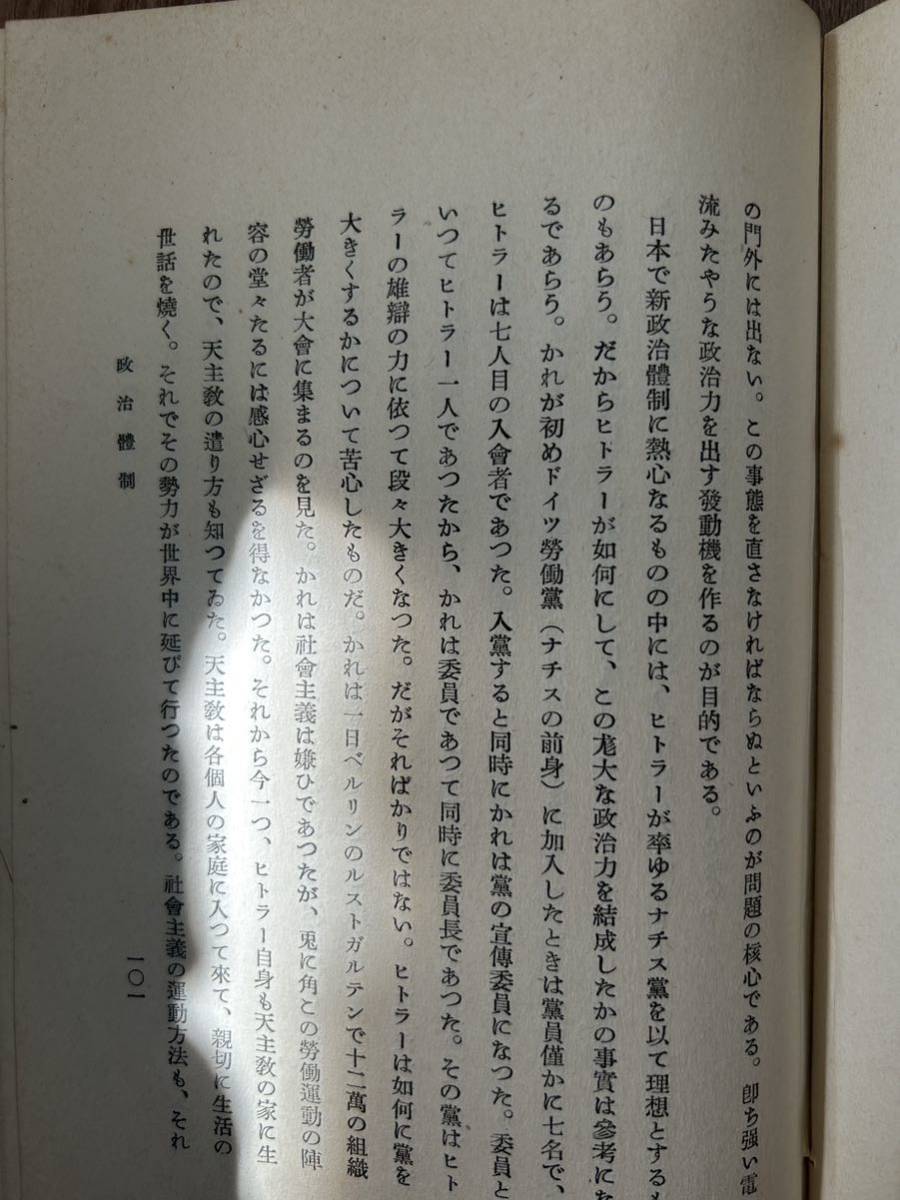 の門外には出ない。この事態を直さなければならぬといふのが問題の核心である。卽ち强い電
流みたやうな政治力を出す發動機を作るのが目的である。
日本で新政治體制に熱心なるものの中には、ヒトラーが率ゆるナチス黨を以て理想とするも
のもあらう。だからヒトラーが如何にして、この尨大な政治力を結成したかの事實は參考にな
るであらう。かれが初めドイツ勞働黨（ナチスの前身）に加入したときは黨員僅かに七名で、
ヒトラーは七人目の入會者であつた。入黨すると同時にかれは黨の宣傳委員になつた。委員と
いつてヒトラー一人であつたから、かれは委員であつて同時に委員長であつた。その黨はヒト
ラーの雄辯の力に依つて段々大きくなつた。だがそればかりではない。ヒトラーは如何に黨を
大きくするかについて苦心したものだ。かれは一日ベルリンのルストガルテンで十二萬の組織
勞働者が大會に集まるのを見た。かれは社會主義は嫌ひであつたが、兎に角この勞働運動の陣
容の堂々たるには感心せざるを得なかつた。それから今一つ、ヒトラー自身も天主敎の家に生
れたので、天主敎の遣り方も知つてゐた。天主敎は各個人の家庭に入つて來て、親切に生活の
世話を燒く。それでその勢力が世界中に延びて行つたのである。社會主義の運動方法も、それ
政治體制
一〇一